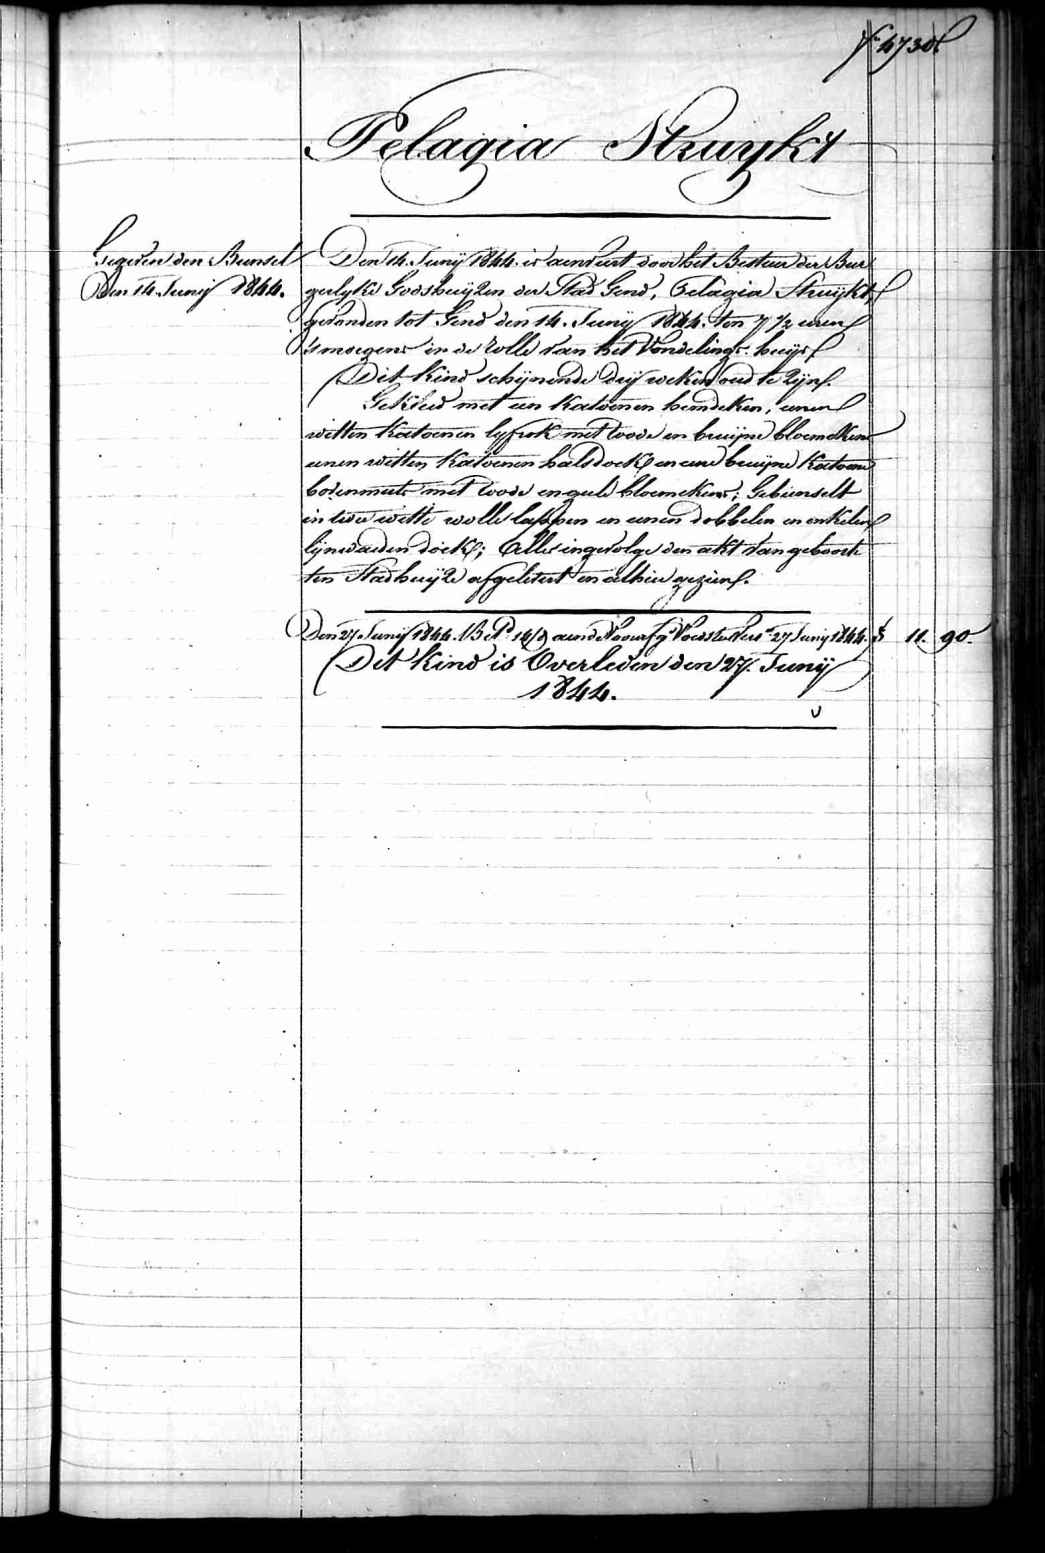 f. 4730
Pelagia Struykt
Gegeven den Bunsel
den 14. Junij 1844.
Den 14. Junij 1844. is aenveert door het Bestuer der Bur
gerlyke Godshuijzen der Stad Gend, Pelagia Struijkt,
gevonden tot Gend den 14. Junij 1844. ten 7 1/2 uren
'smorgens in de rolle van het Vondelings-huijs
Dit kind schijnende drij weken oud te zijn.
Gekleed met een katoenen hemdeken, eenen
witten katoenen lyfrok met roode en bruijne bloemekens
eenen witten katoenen halsdoek en eene bruijne katoene
bovenmuts met roode en gele bloemekens; Gebunselt
in twee witte wolle lappen en eenen dobbelen en enkelen
lijnwaeden doek; Alles ingevolge den akt van geboorte
ten Stadhuijze afgelevert en alhier gezien.
Den 27 Junij 1844. 14/d aende Voedster 27 Junij 1844. 11. 90.
Dit kind is Overleden den 27. Junij
1844.